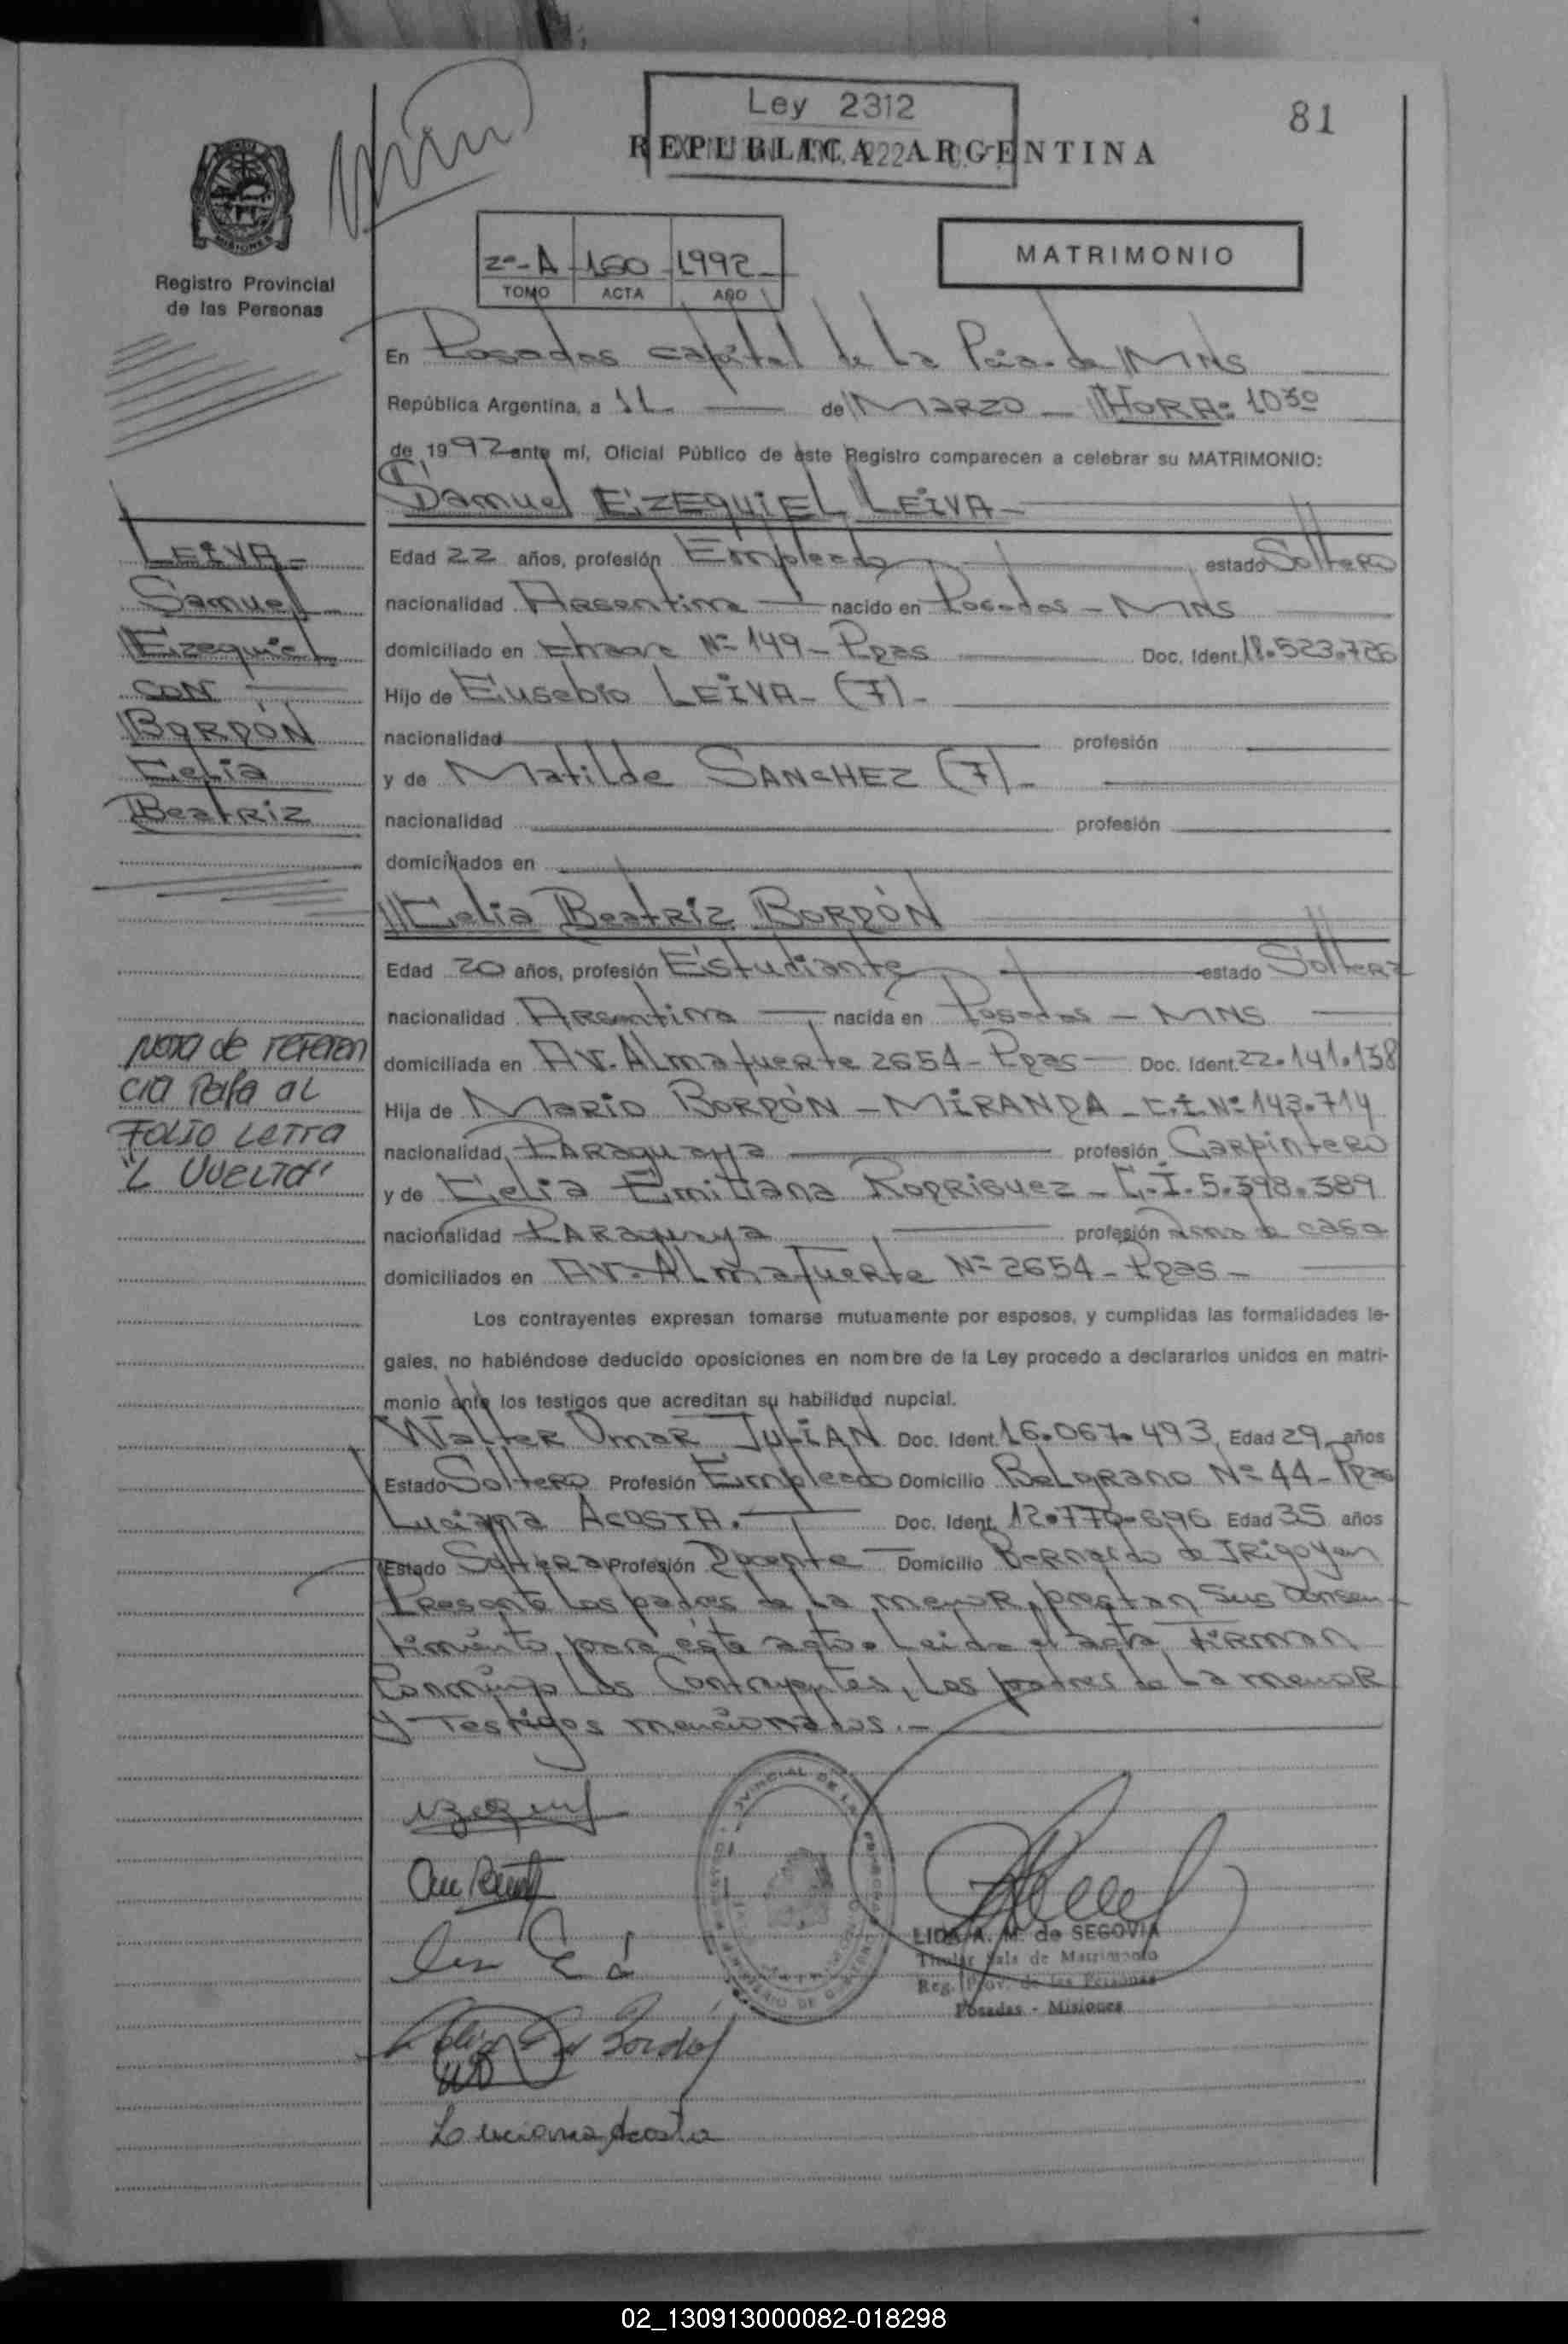 Ley 2312
81
REPUBLICA ARGENTINA
MISIONES
Registro Provincial
de las Personas
2º-A 160 1992
TOMO ACTA AÑO
MATRIMONIO
En Posadas capital de la Pcia. de MNS
República Argentina, a 11 de MARZO - HORA: 10³⁰
de 1992 ante mí, Oficial Público de este Registro comparecen a celebrar su MATRIMONIO:
Samuel EZEQUIEL LEIVA-
Edad 22 años, profesión Empleado estado Soltero
nacionalidad Argentina nacido en Posadas - MNS
domiciliado en Nº 149 - Ppas Doc. Ident. 18.523.726
Hijo de Eusebio LEIVA- (7)-
nacionalidad profesión
y de Matilde SANCHEZ (7)-
nacionalidad profesión
domiciliados en
Celia Beatriz BORDÓN
Edad 20 años, profesión Estudiante estado Soltera
nacionalidad Argentina nacida en Posadas - MNS
domiciliada en AV. Almafuerte 2654 - Ppas Doc. Ident. 22.141.138
Hija de Mario BORDÓN - MIRANDA - C.I. Nº 143.714
nacionalidad PARAguaya profesión Carpintero
y de Celia Emiliana RODRIGUEZ - C.I. 5.398.389
nacionalidad PARAguaya profesión ama de casa
domiciliados en AV. Almafuerte Nº 2654 - Ppas -
Los contrayentes expresan tomarse mutuamente por esposos, y cumplidas las formalidades le-
gales, no habiéndose deducido oposiciones en nombre de la Ley procedo a declararlos unidos en matri-
monio ante los testigos que acreditan su habilidad nupcial.
Walter Omar JULIAN Doc. Ident. 16.067.493 Edad 29 años
Estado Soltero Profesión Empleado Domicilio Belgrano Nº 44 - Ppas
Luciana ACOSTA. Doc. Ident. 12.770.696 Edad 35 años
Estado Soltera Profesión Docente Domicilio Bernardo de Irigoyen
Presente los padres de la menor, prestan sus consen-
timiento para éste acto. Leida el acta FIRMAN
Conmigo los Contrayentes, los padres de la menor
y Testigos mencionados.-
LEIVA-
Samuel
Ezequiel
CON
BORDÓN
Celia
Beatriz
Nota de referen
cia Pasa al
FOLIO LETRA
"L VUELTA"
LIDA A. M. de SEGOVIA
Titular Sala de Matrimonio
Reg. Prov. de las Personas
Posadas - Misiones
Luciana Acosta
02_130913000082-018298